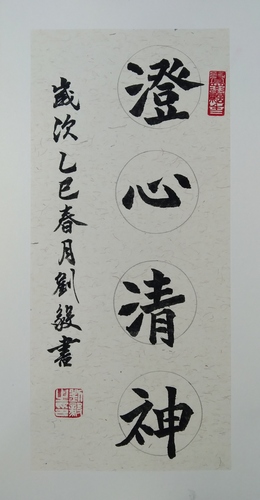 澄心清神
歲次乙巳春月劉毅書